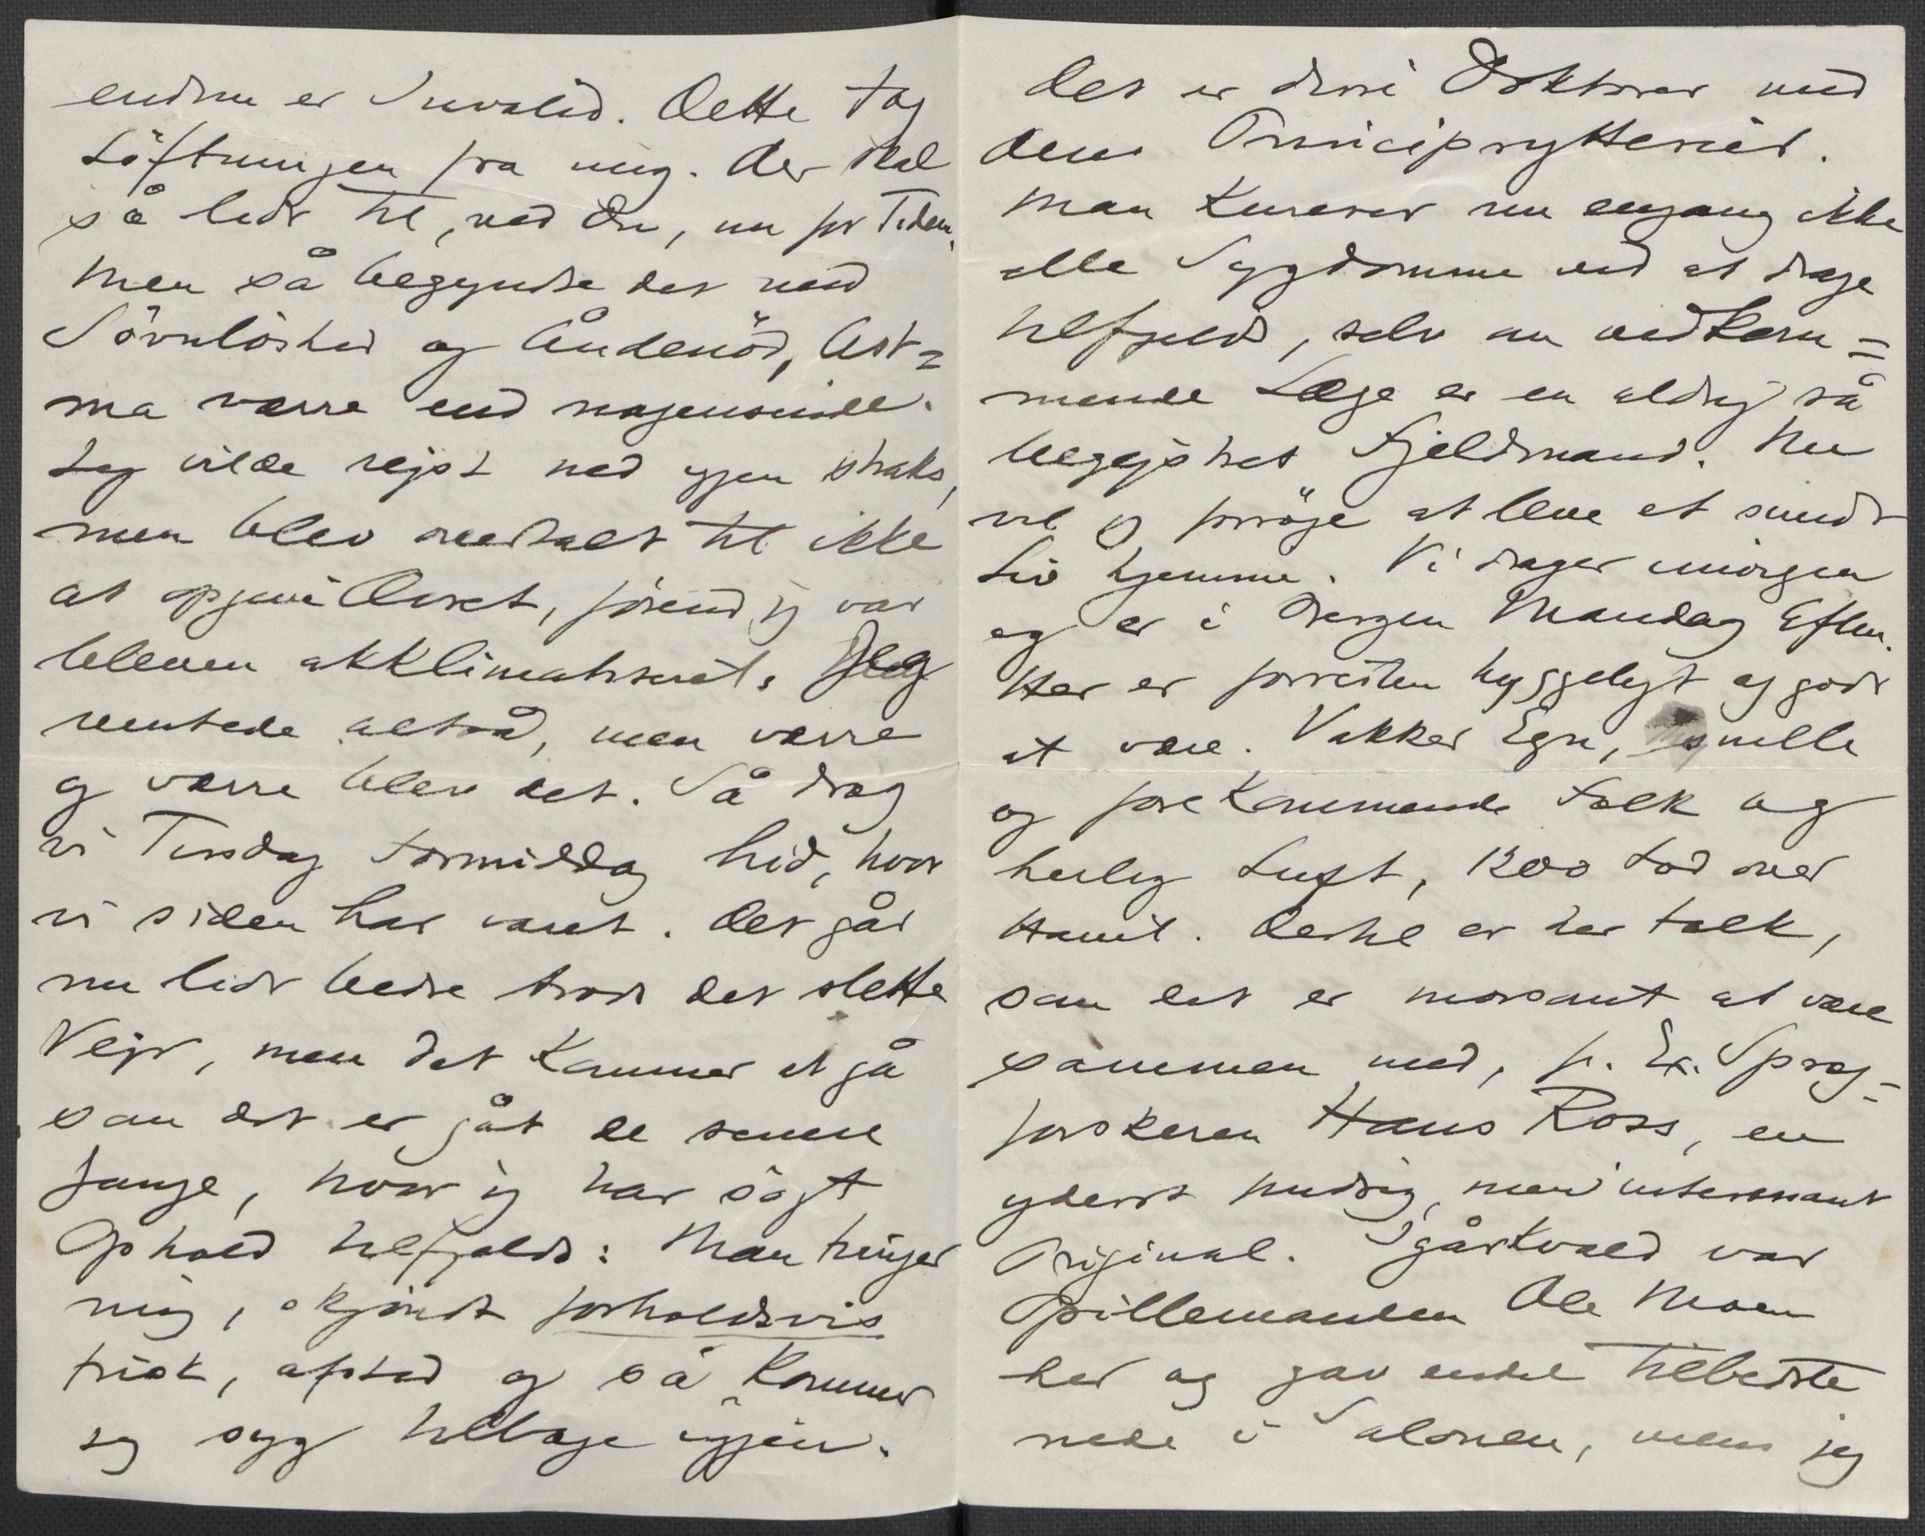 endnu er Invalid. Dette tog
Løftningen fra mig. Der skal
så lidt til, ved Du, nu for Tiden,
Men så begyndte det med
Sövnlöshed og Åndenöd, Ast=
ma værre end nogensinde.
Jeg vilde rejst ned igjen straks,
men blev overtalt til ikke
at opgive Ævret, førend jeg var
bleven akklimatiseret. Jeg
ventede altså, men værre
og værre blev det. Så drog
vi Tirsdag Formiddag hid, hvor
vi siden har været. Det går
nu lidt bedre trods det slette
Vejr, men det kommer at gå
som det er gåt de senere
Gange, hvor jeg har søgt
Ophold tilfjelds: Man tvinger
mig, skjøndt forholdsvis
frisk, afsted og så kommer
jeg syg tilbage igjen.
Det er disse Doktorer med
deres Principrytterier.
Man kurerer nu engang ikke
alle Sygdomme ved at drage
tilfjelds, selv om vedkom=
mende Læge er en aldrig så
begejstret Fjeldmand. Nu
vil jeg forsöge at leve et sundt
Liv hjemme. Vi drager imorgen
og er i Bergen Mandag Eften.
Her er forresten hyggeligt og godt
at være. Vakker Egn, snille
og forekommende Folk og
herlig Luft, 1200 Fod over
Havet. Dertil er her Folk,
som det er morsomt at være
sammen med, f. Ex. Sprog-
forskeren Hans Ross, en
yderst pudsig, men interessant
Original. Igårkvæld var
Spillemanden Ole Moen
her og gav endel tilbedste
nede i Salonen, mens jeg